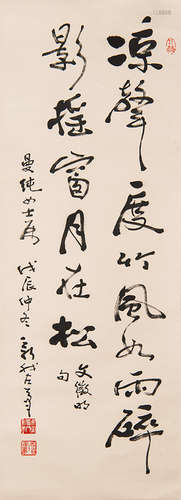 涼聲度竹風如雨碎
影搖窗月在松
文徵明
句
曼純女士屬
戊辰仲冬新我左